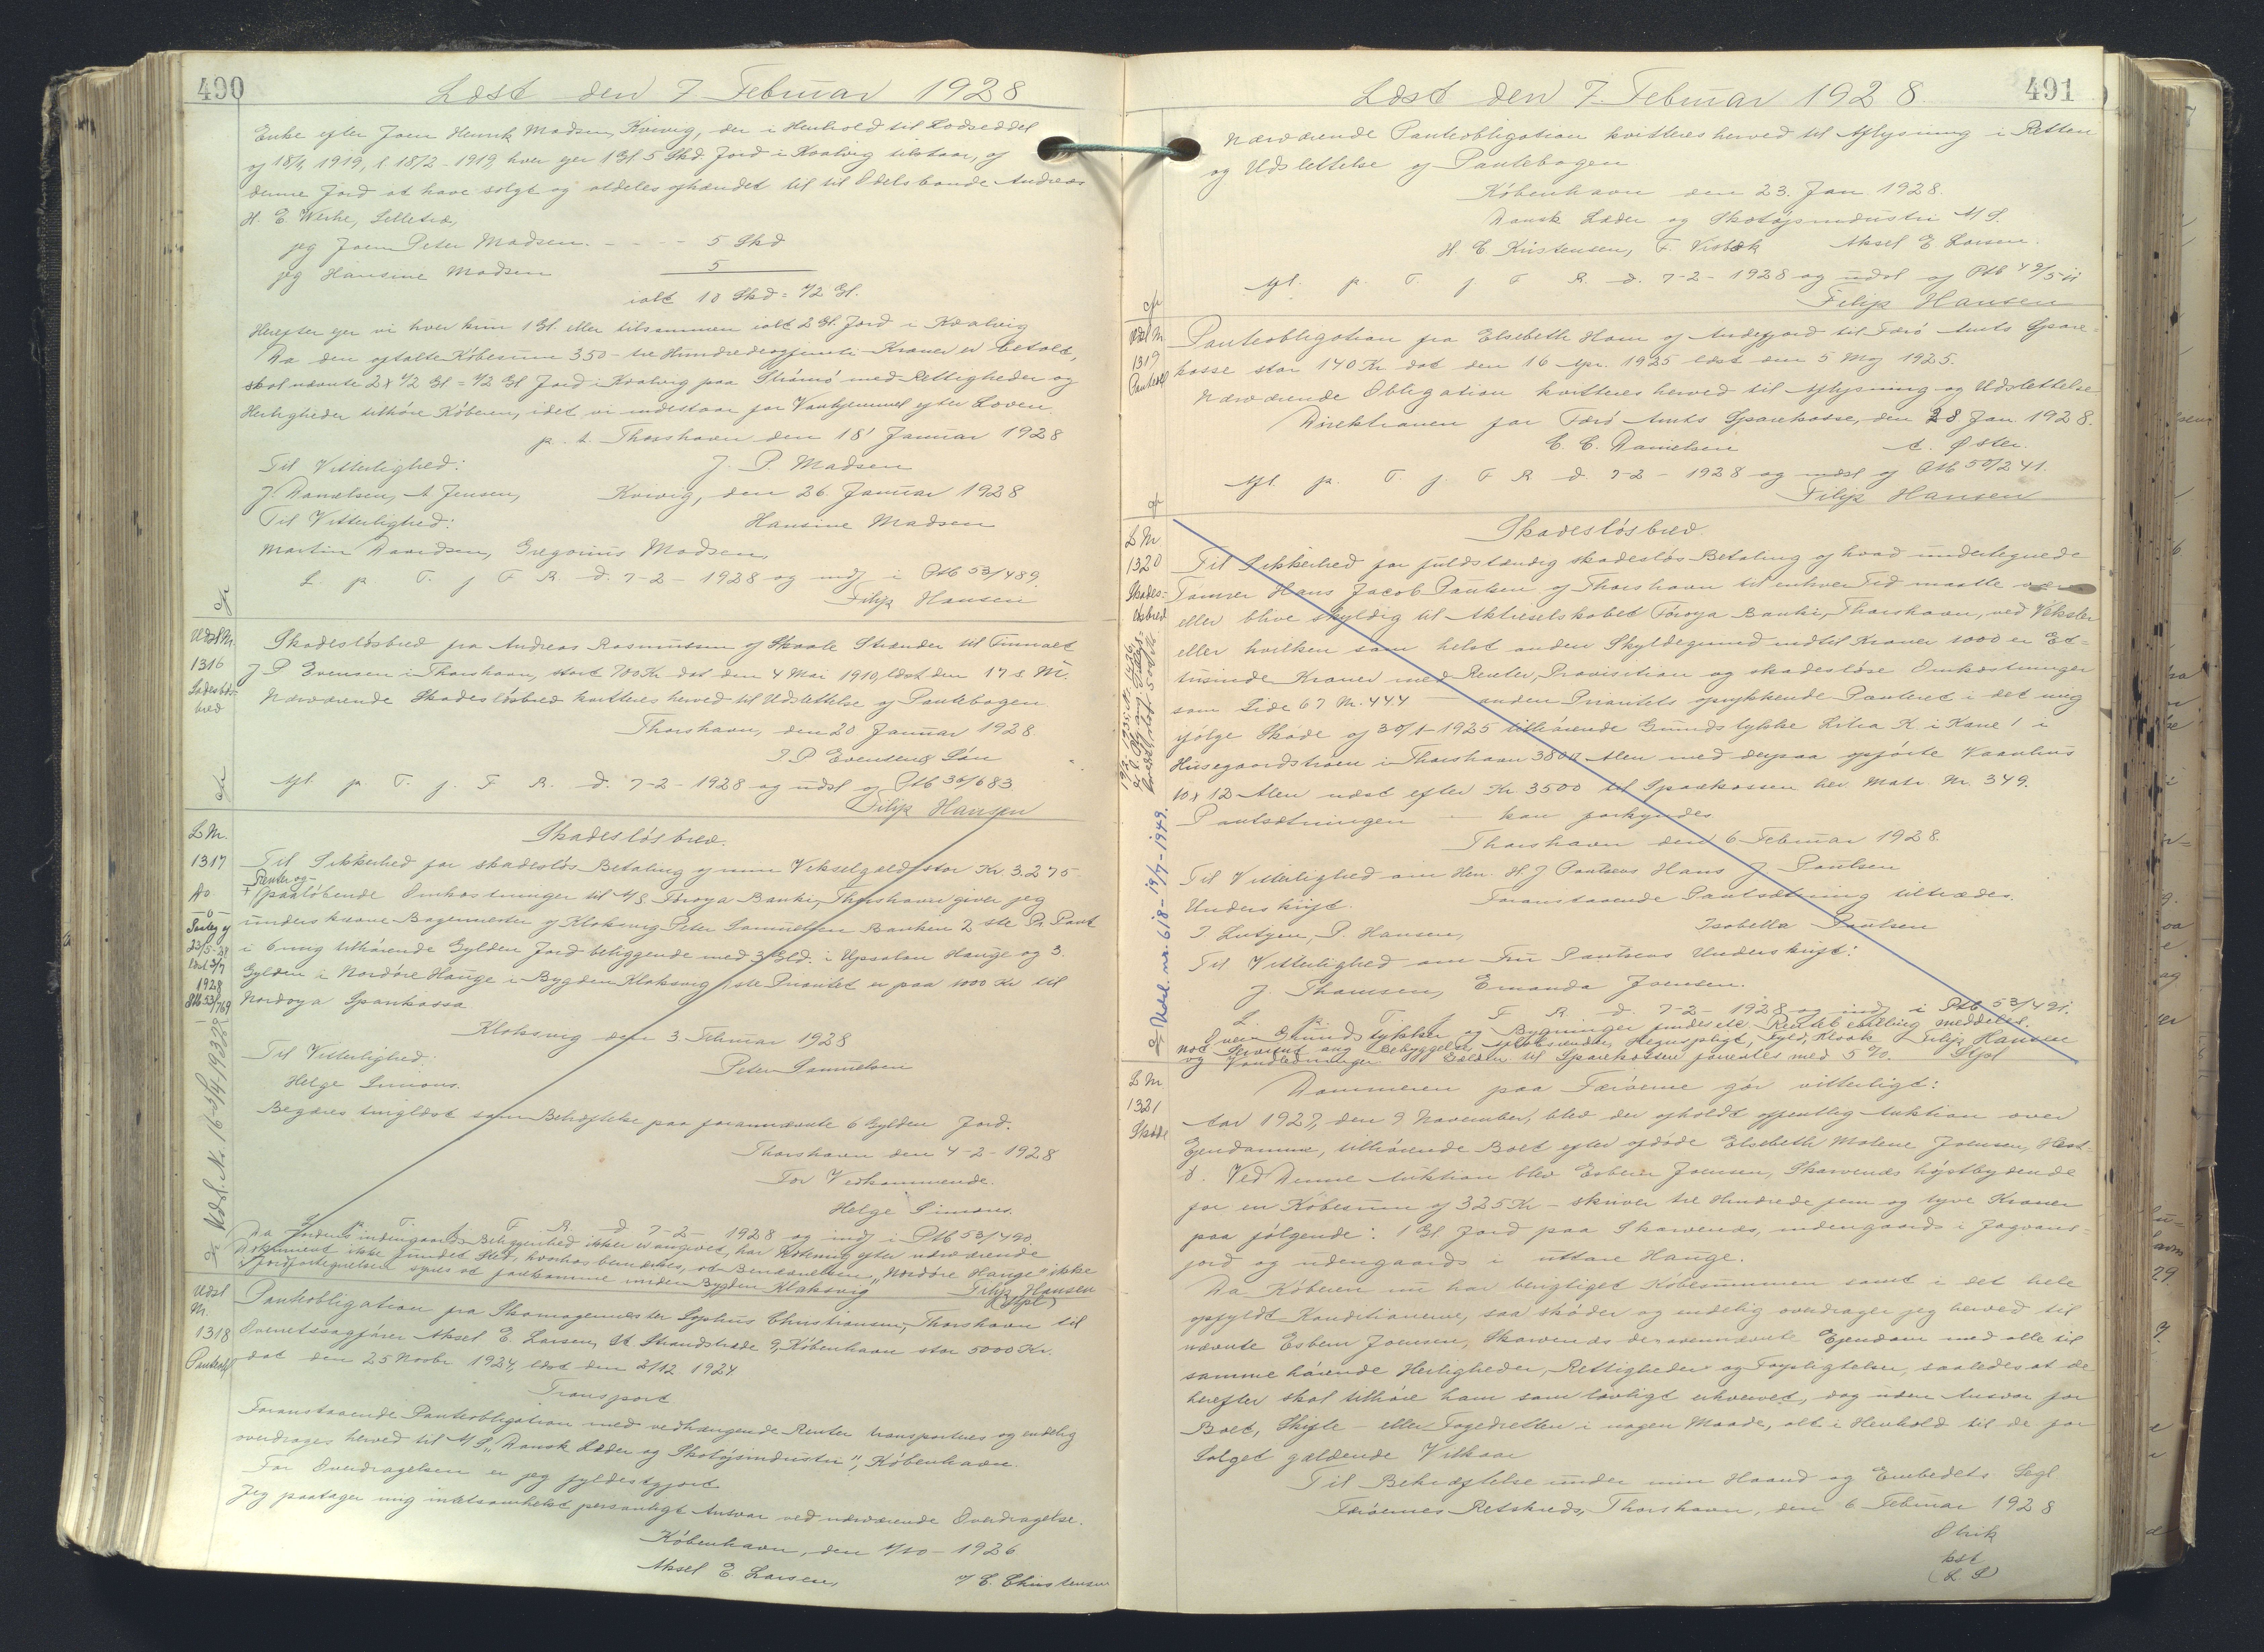 490
Læst den 7 Februar 1928
Enke efter Joen Henrik Madsen, Kvivig, der i Henhold til Lodseddel
af 18/4 1919, l. 18/2 - 1919 hver ejer 1 Gl 5 Skd. Jord i Kvalvig tilstaar, af
denne Jord at have solgt og aldeles afhændet til til Odelsbonde Andreas
H. E. Weihe, Selletræ,
jeg Joen Peter Madsen - - - - 5 Skd
jeg Hansine Madsen 5
ialt 10 Skd = 1/2 Gl.
Herefter ejer vi hver kun 1 Gl. eller tilsammen ialt 2 Gl. Jord i Kvalvig
Da den aftalte Købesum 350 - tre Hundredeogfemti - Kroner er betalt,
skal nævnte 2 x 1/2 Gl = 1/2 Gl Jord i Kvalvig paa Strømø med Rettigheder og
Herligheder tilhøre Køberen, idet vi indestaar for Vanhjemmel efter Loven
p. t. Thorshavn den 18' Januar 1928
Til Vitterlighed: J. P. Madsen
J. Danielsen, A Jensen, Kvivig, den 26. Januar 1928
Til Vitterlighed: Hansine Madsen
Martin Davidsen, Gregorius Madsen,
L. p. T. f F R. d. 7-2- 1928 og indf i Ptb 53/489.
Filip Hansen
Udsl Nr.
1316
Skadesløsbrev fra Andreas Rasmussen af Skaale Strænder til Firmaet
J P Evensen i Thorshavn, stort 700 Kr dat den 4 Mai 1910, læst den 17 s. M.
Nærværende Skadesløsbrev kvitteres herved til Udslettelse af Pantebogen
Thorshavn, den 20 Januar 1928.
J. P Evensens Søn
Afl. p T. f. F. R. d. 7-2- 1928 og udsl af Ptb 36/683
Filip Hansen
L Nr.
1317
Skadesløsbrev.
Til Sikkerhed for skadesløs Betaling af min Vekselgæld, stor Kr. 3.275
Renter og
+ paaløbende Omkostninger til A/S Føroya Banki, Thorshavn giver jeg
underskrevne Bagermester af Klaksvig Peter Samuelsen Banken 2 ste Pr. Pant
i 6 mig tilhørende Gylden Jord beliggende med 3 Gld. i Uppsalon Hauge og 3
Gylden i Nordøre Hauge i Bygden Klaksvig 1ste Prioritet er paa 1000 Kr til
Nordoya Sparikassa
Klaksvig den 3 Februar 1928
Til Vitterlighed: Peter Samuelsen
Helge Simons.
Begæres tinglæst som Behæftelse paa forannævnte 6 Gylden Jord.
Thorshavn den 4-2-1928
For Vedkommende.
Helge Simons.
L p. T. f. F. R. d 7-2- 1928 og indf i Ptb 53/490
Da Jordens indengaards Beliggenhed ikke er angivet, har Notering efter nærværende
Dokument ikke fundet Sted, hvorhos bemærkes, at Benævnelsen „Nordøre Hauge" ikke
i Jordfortegnelsen synes at forekomme under Bygden Klaksvig Filip Hansen
Udsl
Nr.
1318
Panteobl
Panteobligation fra Skomagermester Sophus Christiansen, Thorshavn til
Overretssagfører Aksel E. Larsen, St Strandstræde 9, København stor 5000 Kr.
dat den 25 Novbr 1924, læst den 2/12 1924.
Transport
Foranstaaende Panteobligation med vedhængende Renter transporteres og endelig
overdrages herved til A/S „Dansk Læder og Skotøjsindustri", København.
For Overdragelsen er jeg fyldestgjort
Jeg paatager mig intetsomhelst personligt Ansvar ved nærværende Overdragelse.
København, den 1/10 - 1926
Aksel E. Larsen,
491
Læst den 7. Februar 1928.
Nærværende Panteobligation kvitteres herved til Aflysning i Retten
og Udslettelse af Pantebogen
København den 23. Jan 1928.
Dansk Læder og Skotøjsindustri A/S.
H. C. Kristensen, F. Visbæk Aksel E Larsen.
Afl. p. T. f F R. d. 7-2- 1928 og udsl af Ptb 49/511
Filip Hansen
Udsl Nr
1319
Panteobl
Panteobligation fra Elsebeth Ham af Andefjord til Færø Amts Spare=
kasse stor 140 Kr dat den 16 Apr. 1925 læst den 5 Maj 1925.
Nærværende Obligation kvitteres herved til Aflysning og Udslettelse
Direktionen for Færø Amts Sparekasse, den 28 Jan. 1928.
C. C. Danielsen A. Øster.
Afl. p. T. f. F R d. 7-2- 1928 og udsl af Ptb 50/241.
Filip Hansen
L Nr
1320
Skades=
løsbrev
Skadesløsbrev.
Til Sikkerhed for fuldstændig skadesløs Betaling af hvad undertegnede
Tømrer Hans Jacob Poulsen af Thorshavn til enhver Tid maatte være
eller blive skyldig til Aktieselskabet Føroya Banki, Thorshavn, ved Veksler
eller hvilken som helst anden Skyldegrund indtil Kroner 1000 er Et=
tusinde Kroner med Renter, Provisition og skadesløse Omkostninger
som Side 67 Nr. 444 — anden Prioritets oprykkende Panteret i det mig
ifølge Skøde af 30/1-1925 tilhørende Grundstykke Litra K i Kane 1 i
Husegaardstræen i Thorshavn 3800 Alen med derpaa opførte Vaanhus
10 x 12 Alen næst efter Kr 3500 til Sparekassen her. Matr. Nr. 349.
Pantsætningen — kan forkyndes
Thorshavn den 6 Februar 1928.
Til Vitterlighed om Hr. H. J Poulsens Hans J Poulsen
Underskrift. Foranstaaende Pantsætning tiltrædes.
J Lutzen, P. Hansen, Isobella Poulsen
Til Vitterlighed om Fru Poulsens Underskrift:
J. Thomsen, Emanda Joensen.
L. p. T. f F R. d. 7-2- 1928 og indf i Ptb 53/491.
Udsl. nr. 618-19/7-1949.
L Nr
1321
Skøde
Dommeren paa Færøerne gør vitterligt:
Aar 1927, den 9 November, blev der afholdt offentlig Auktion over
Ejendomme, tilhørende Boet efter afdøde Elsebeth Malene Joensen, Hest=
ø. Ved Denne Auktion blev Esbern Joensen, Skarvenæs højstbydende
for en Købesum af 325 Kr - skriver tre Hundrede fem og tyve Kroner
paa følgende: 1 Gl Jord paa Skarvenæs, indengaards i Jogvans=
jord og udengaards i uttare Hauge.
Da Køberen nu har berigtiget Købesummen samt i det hele
opfyldt Konditionerne, saa skøder og endelig overdrager jeg herved til
nævnte Esbern Joensen, Skarvenæs den ovennævnte Ejendom med alle til
samme hørende Herligheder, Rettigheder og Forpligtelser, saaledes at de
herefter skal tilhøre ham som lovligt erhvervet, dog uden Ansvar for
Boet, Skifte - eller Fogedretten i nogen Maade, alt i Henhold til de for
Salget gældende Vilkaar
Til Bekræftelse under min Haand og Embedets Segl.
Færøernes Retskreds, Thorshavn, den 6 Februar 1928
Olrik
kst
(L S)